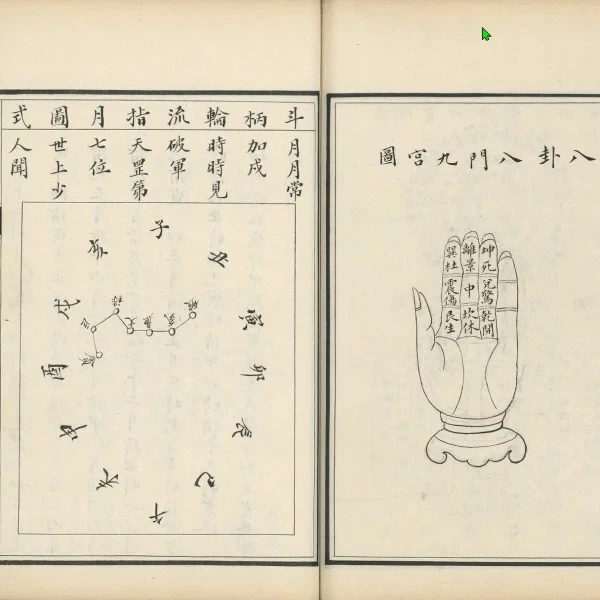 八卦八門九宮圖
坤死
兌驚
乾開
離景
中
坎休
巽杜
震傷
艮生
斗柄輪流指月圖式
月月常
加戌
時時見
破軍
天罡第
七位
世上少
人聞
子
丑
寅
卯
辰
巳
午
未
申
酉
戌
亥
破
武
廉
文
祿
巨
貪